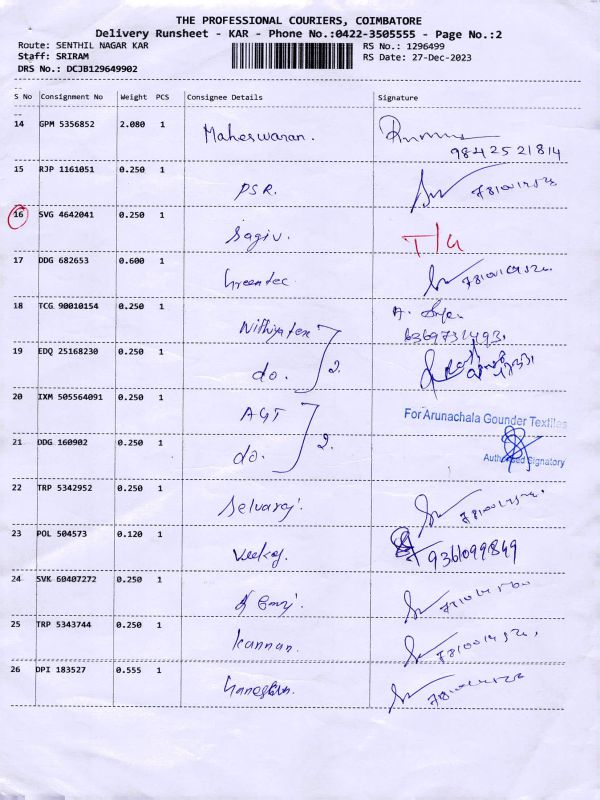 THE PROFESSIONAL COURIERS, COIMBATORE
Delivery Runsheet - KAR - Phone No.:0422-3505555 - Page No.:2
Route: SENTHIL NAGAR KAR RS No.: 1296499
Staff: SRIRAM RS Date: 27-Dec-2023
DRS No.: DCJB129649902
S No Consignment No Weight PCS Consignee Details Signature
14 GPM 5356852 2.080 1 Maheswaran.
9842521814
15 RJP 1161051 0.250 1 PSR.
16 SVG 4642041 0.250 1 Sagiv.
17 DDG 682653 0.600 1 Greentec
18 TCG 90010154 0.250 1 Nithiyatex
6369731493.
19 EDQ 25168230 0.250 1 do. 2.
20 IXM 505564091 0.250 1 AGT
For Arunachala Gounder Textiles
21 DDG 160902 0.250 1 do. 2.
Authorised Signatory
22 TRP 5342952 0.250 1 Selvaraj.
23 POL 504573 0.120 1 9361099849
24 SVK 60407272 0.250 1
25 TRP 5343744 0.250 1 Kannan.
26 DPI 183527 0.555 1